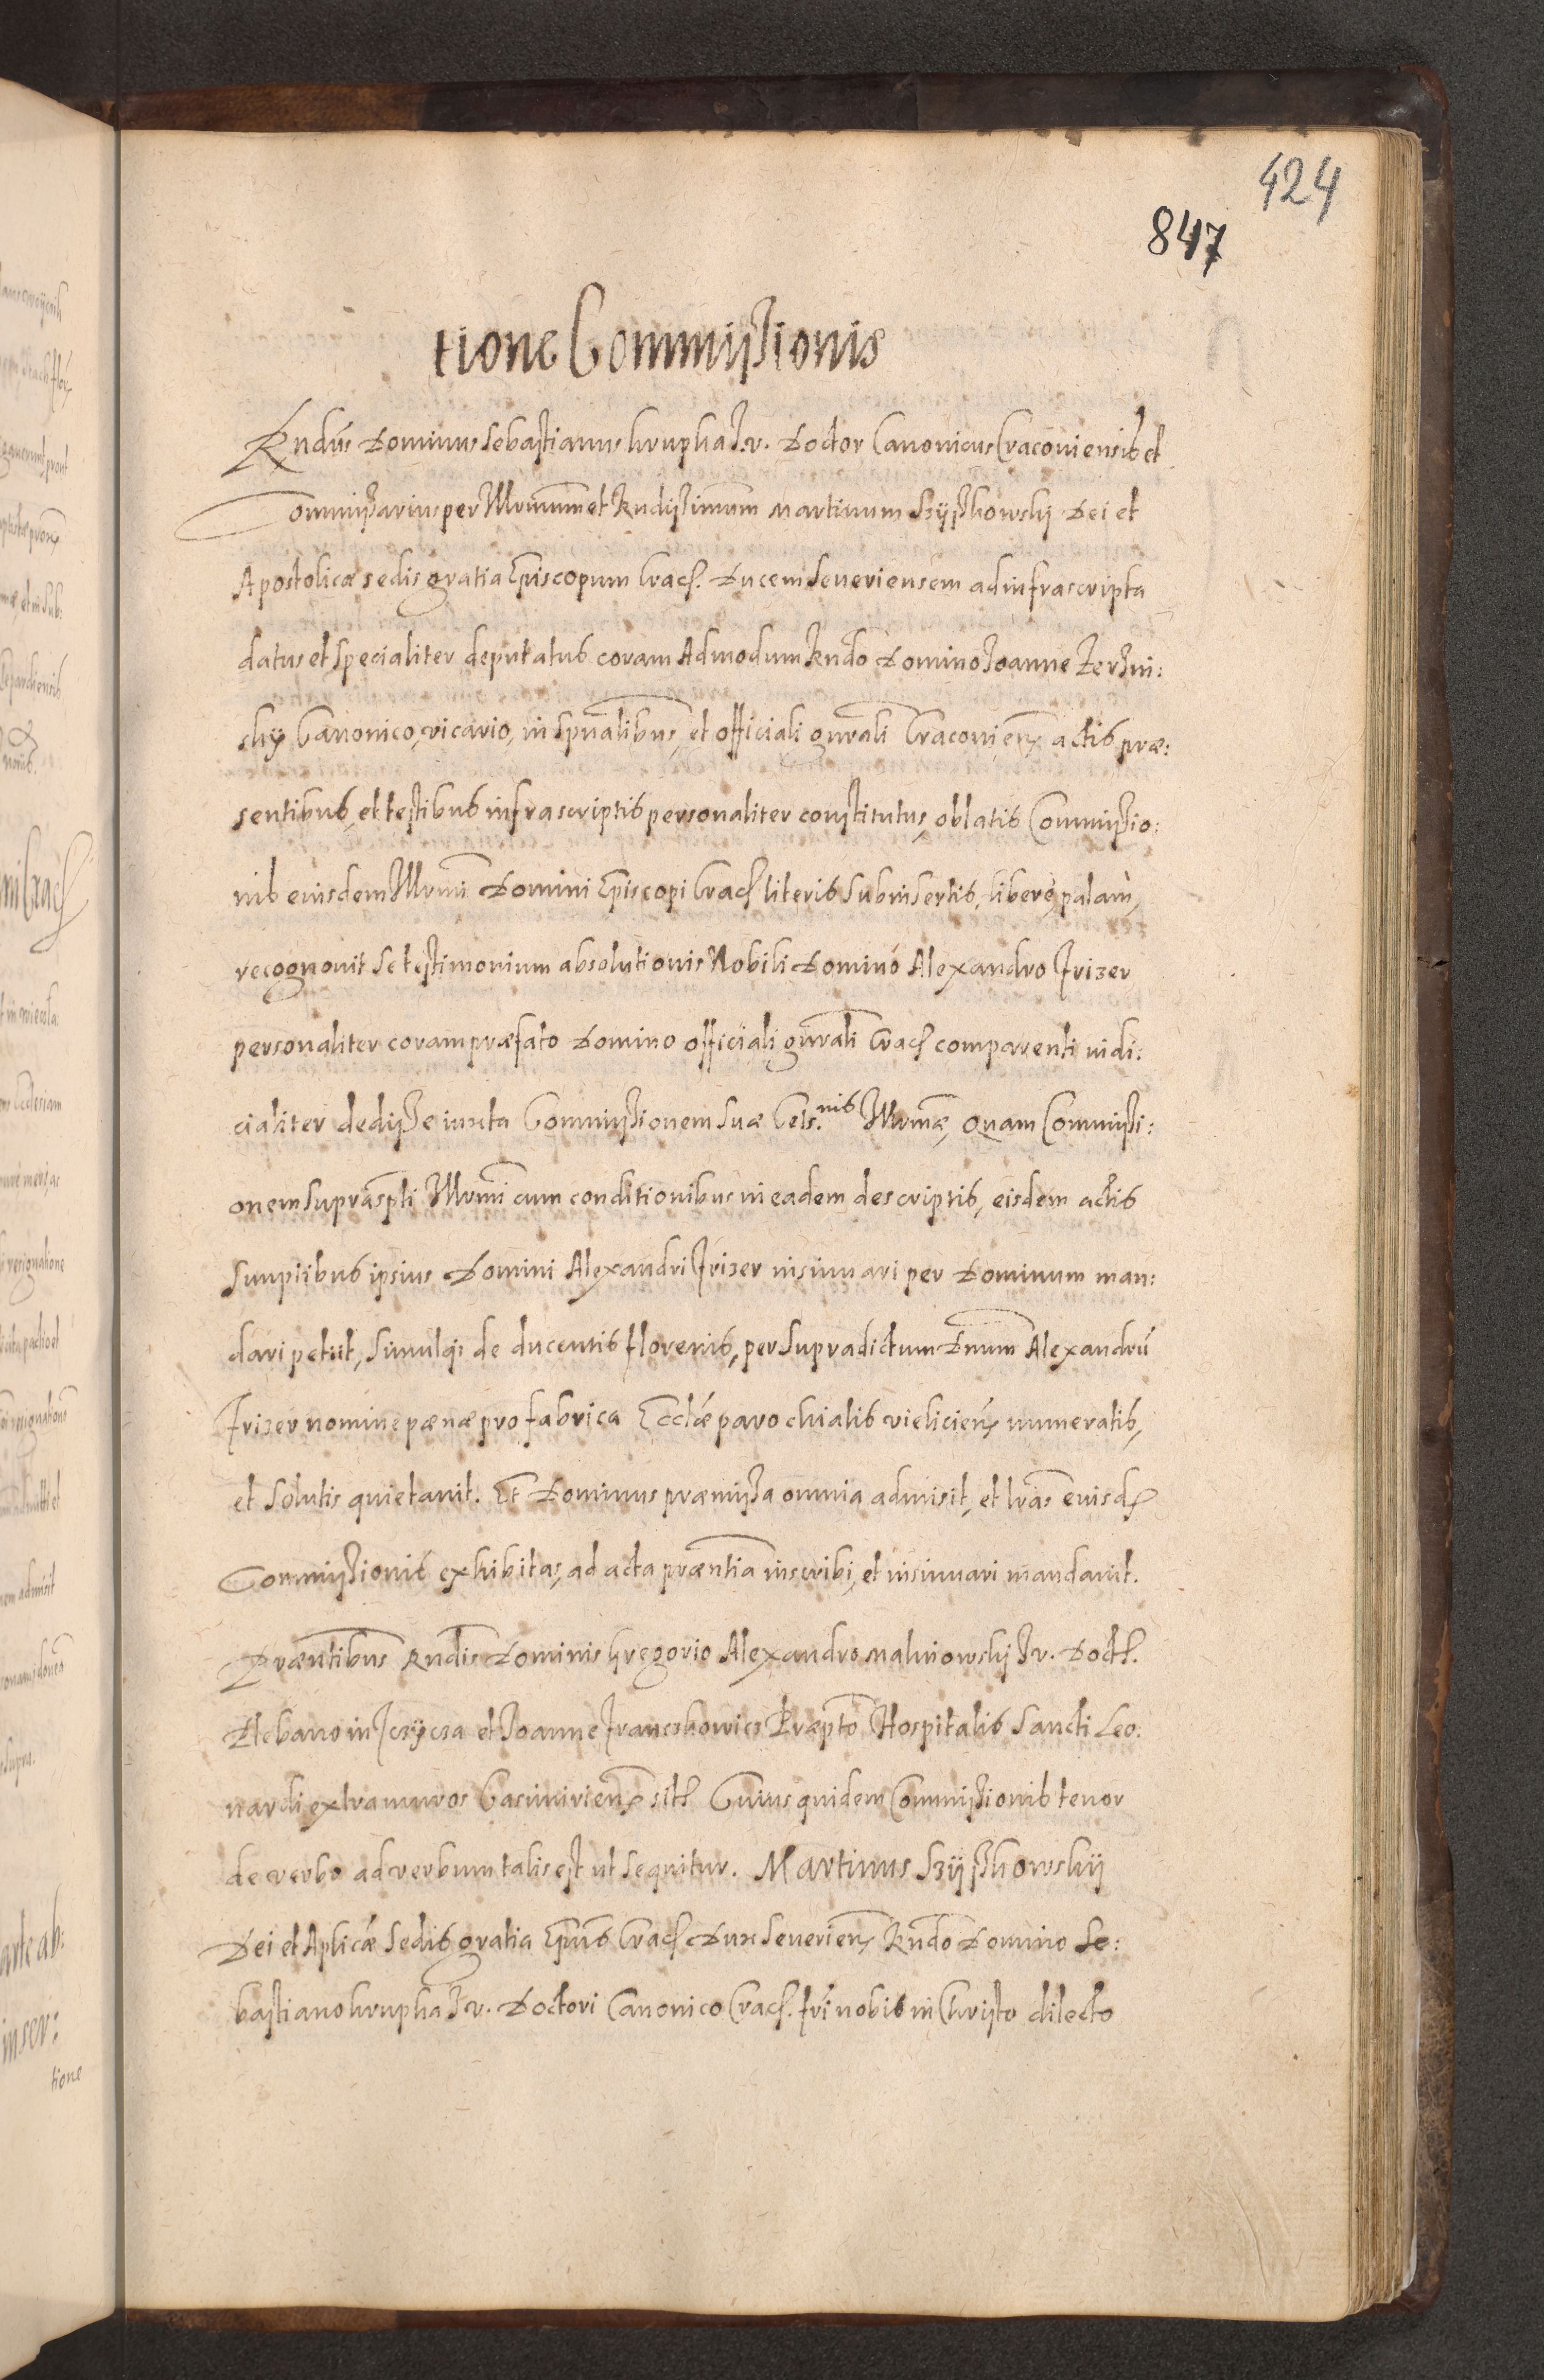 424
847
tione Commissionis
Rndus Dominus Sebastianus Krupka I.v. Doctor Canonicus Cracoviensis et
Commissarius per Illrmum et Rndissimum Martinum Szyszkowsky Dei et
Apostolicæ sedis gratia Episcopum Crac. Ducem Severiensem ad infrascripta
datus et specialiter deputatus coram Admodum Rndo Domino Joanne
sky Canonico, vicario, in spnalibus, et officiali gnrali Cracovien, actis præ:
sentibus, et testibus infrascriptis personaliter constitutus, oblatis Commissio:
nis eiusdem Illrmi Domini Episcopi Crac literis subinsertis, libere, palam,
recognovit se testimonium absolutionis Nobili Domino Alexandro Frizer
personaliter coram præfato Domino officiali gnrali Crac comparenti iudi:
cialiter dedisse iuxta Commissionem suæ Cels.nis Illrmæ, Quam Commissi:
onem suprasPti Illrmi cum conditionibus in eadem descriptis, eisdem actis
sumptibus ipsius Domini Alexandri Frizer insinuari per Dominum man:
dari petiit, simulqi de ducentis florenis, per supradictum Dnum Alexandrū
Frizer nomine pænæ pro fabrica Ecclæ parochialis vielicien, numeratis,
et solutis quietavit. Et Dominus præmissa omnia admisit, et lras eiusd
Commissionis exhibitas, ad acta præntia inscribi, et insinuari mandavit.
Præntibus Rndis Dominis Gregorio Alexandro Malinowsky I.v. Doct.
Plebano in et Joanne Franczkowicz Præpto Hospitalis Sancti Leo:
nardi extra muros Casimirien sit Cuius quidem Commissionis tenor
de verbo ad verbum talis est ut sequitur. Martinus Szyszkowsky
Dei et Aplicæ Sedis gratia Epus Crac Dux Severien, Rndo Domino Se:
bastiano Krupka I.v. Doctori Canonico Crac. fri nobis in Christo dilecto